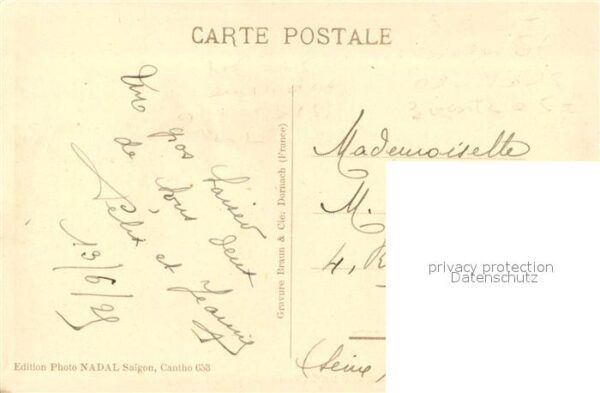 CARTE POSTALE
Un gros baiser
de tous deux
et Jeanne
13/6/29
Gravure Braun & Cie, Dornach (France)
Mademoiselle
M.
4, R
(Seine,
Edition Photo NADAL Saigon, Cantho 653
privacy protection
Datenschutz